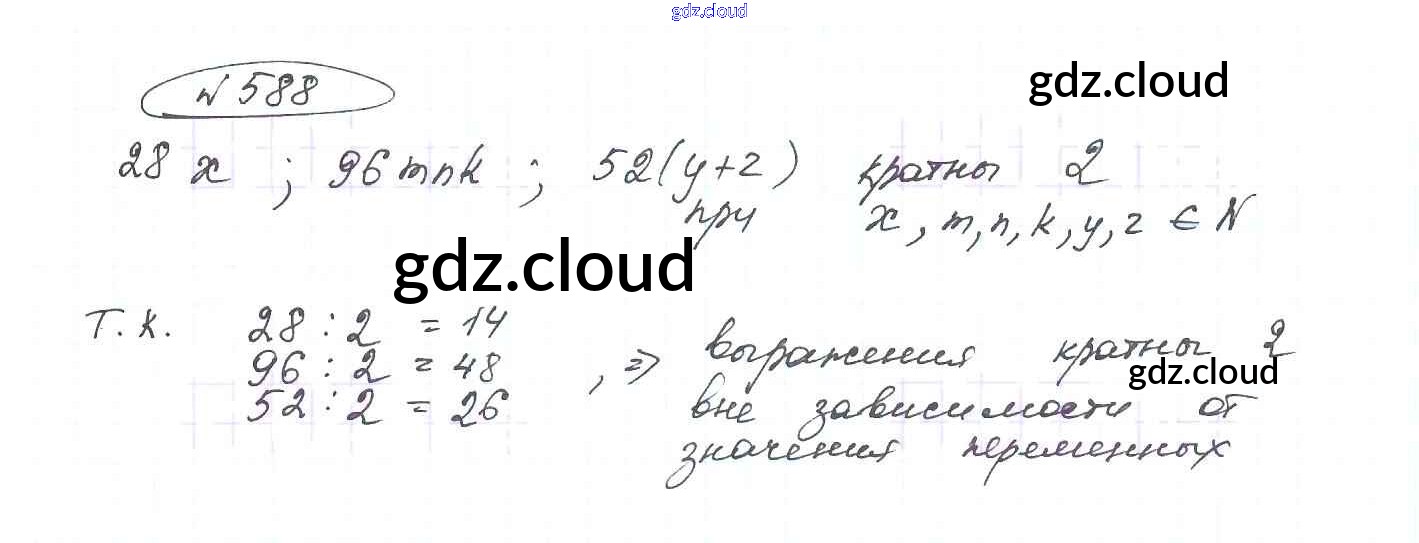 gdz.cloud
№ 588
gdz.cloud
28 x ; 96 mnk ; 52(y+z) кратны 2
при x, m, n, k, y, z ∈ N
gdz.cloud
Т. к. 28 : 2 = 14
96 : 2 = 48
52 : 2 = 26
, ⇒ выражения кратны 2
gdz.cloud
вне зависимости от
значения переменных